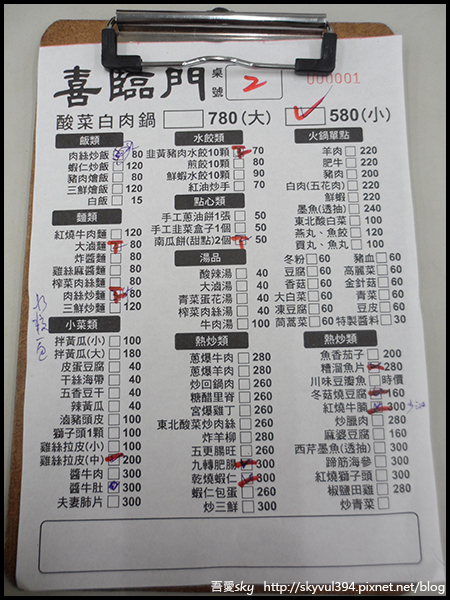 喜臨門 桌號 2 000001
酸菜白肉鍋 780(大) 580(小)
飯類
肉絲炒飯 80
蝦仁炒飯 120
豬肉燴飯 80
三鮮燴飯 120
白飯 15
麵類
紅燒牛肉麵 120
大滷麵 80
炸醬麵 80
雞絲麻醬麵 80
榨菜肉絲麵 80
肉絲炒麵 80
三鮮炒麵 120
小菜類
拌黃瓜(小) 100
拌黃瓜(大) 180
皮蛋豆腐 40
干絲海帶 40
五香豆干 40
辣黃瓜 40
滷豬頭皮 100
獅子頭1顆 100
雞絲拉皮(小) 100
雞絲拉皮(中) 200
醬牛肉 300
醬牛肚 300
夫妻肺片 300
水餃類
韭黃豬肉水餃10顆 70
煎餃10顆 80
鮮蝦水餃10顆 90
紅油炒手 70
點心類
手工蔥油餅1張 50
手工韭菜盒子1個 50
南瓜餅(甜點)2個 50
湯品
酸辣湯 40
大滷湯 40
青菜蛋花湯 40
榨菜肉絲湯 40
牛肉湯 100
熱炒類
蔥爆牛肉 280
蔥爆羊肉 280
炒回鍋肉 260
糖醋里脊 260
宮爆雞丁 260
東北酸菜炒肉絲 260
炸羊柳 280
五更腸旺 260
九轉肥腸 300
乾燒蝦仁 300
蝦仁包蛋 260
炒三鮮 300
火鍋單點
羊肉 220
肥牛 220
豬肉 200
白肉(五花肉) 220
鮮蝦 220
墨魚(透抽) 240
東北酸白菜 100
燕丸、魚餃 120
貢丸、魚丸 100
冬粉 60 豬血 60
豆腐 60 高麗菜 60
香菇 60 金針菇 60
大白菜 60 青菜 60
凍豆腐 60 豆皮 60
茼蒿菜 60 特製醬料 30
熱炒類
魚香茄子 200
糟溜魚片 280
川味豆瓣魚 時價
冬菇燒豆腐 160
紅燒牛腩 300
炒臘肉 280
麻婆豆腐 160
西芹墨魚(透抽) 300
蹄筋海參 300
紅燒獅子頭 300
椒鹽田雞 280
炒青菜
吾愛sky http://skyvul394.pixnet.net/blog